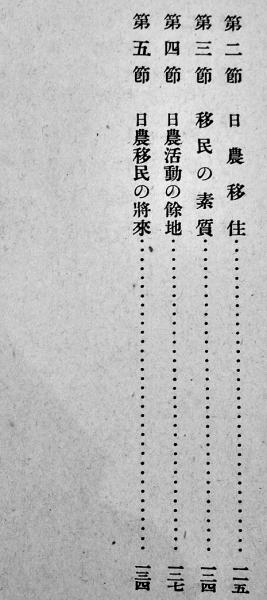 第二節 日農移住…………………………一一五
第三節 移民の素質…………………………一二四
第四節 日農活動の餘地…………………………一二七
第五節 日農移民の將來…………………………一三四